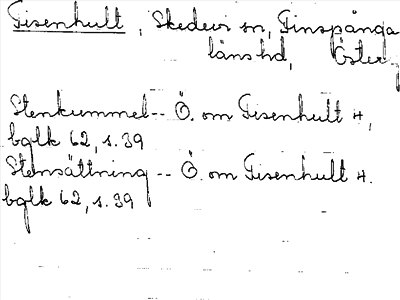 Tisenhult, Skedevi sn, Finspånga
länshd, Österg
Stenkummel -- Ö. om Tisenhult 4,
bglk 62, s. 39
Stensättning -- Ö. om Tisenhult 4.
bglk 62, s. 39